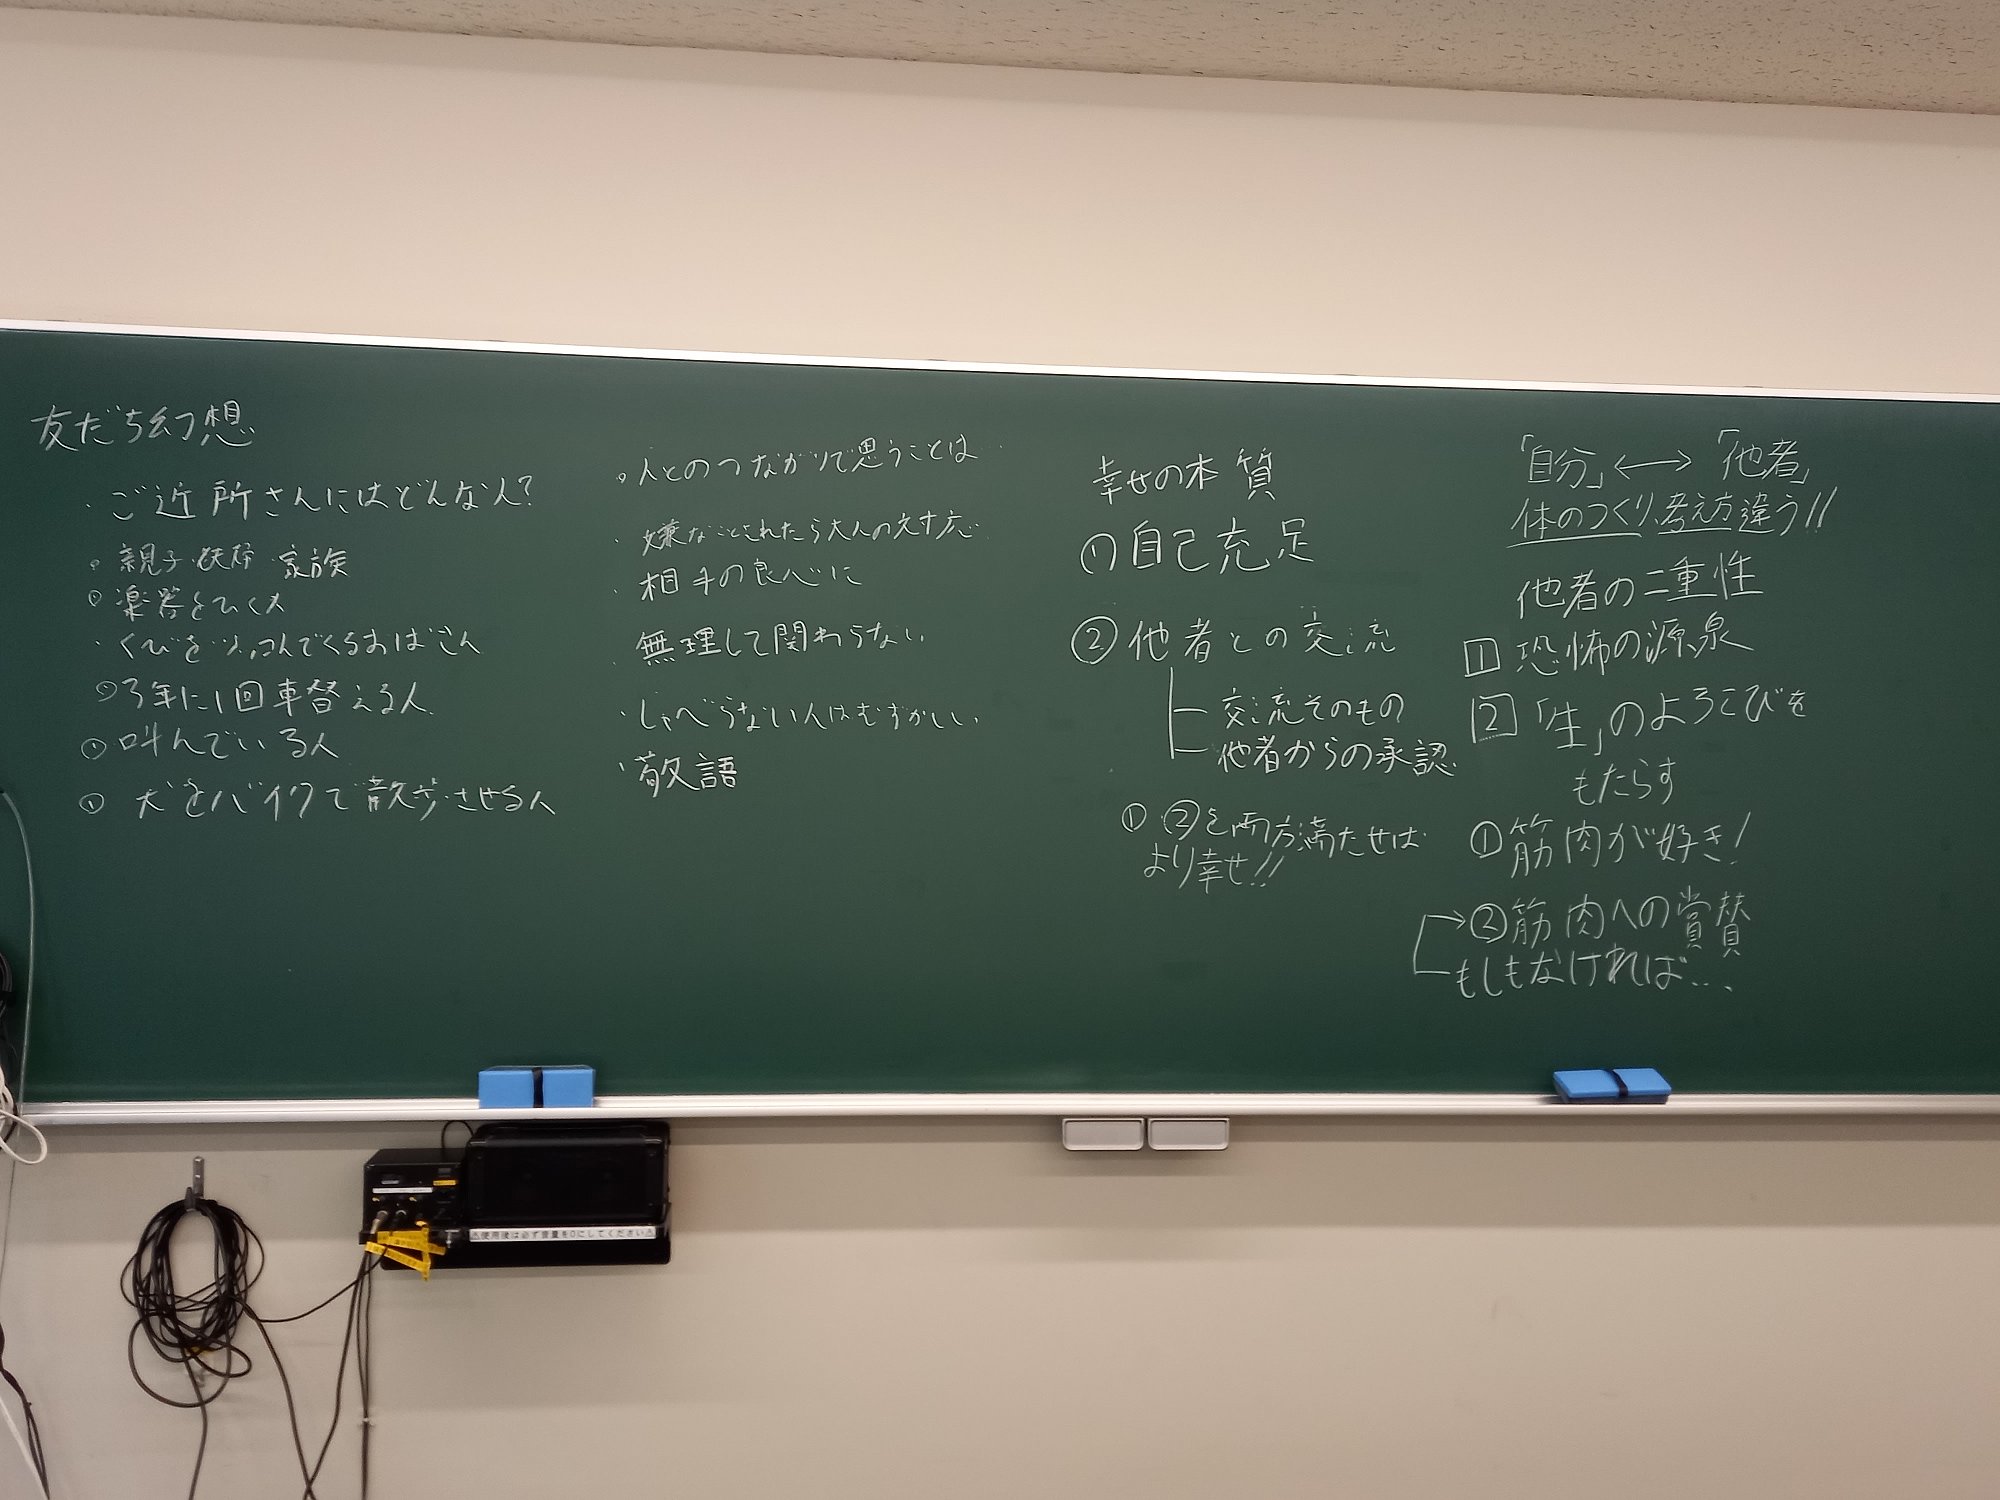 友だち幻想
・ご近所さんにはどんな人?
・親子・妖怪・家族
・楽器をひく人
・くびをつっこんでくるおばさん
・3年に1回車替える人
・叫んでいる人
・犬をバイクで散歩させる人
・人とのつながりで思うことは…
・嫌なことされたら大人の対応
・相手の良心に
・無理して関わらない
・しゃべらない人はむずかしい
・敬語
幸せの本質
①自己充足
②他者との交流
交流そのもの
他者からの承認
①②を両方満たせば
より幸せ!!
「自分」⟷「他者」
体のつくり、考え方違う!!
他者の二重性
1 恐怖の源泉
2 「生」のよろこびを
もたらす
①筋肉が好き!
→②筋肉への賞賛
もしもなければ…
⚠使用後は必ず音量を0にしてください⚠